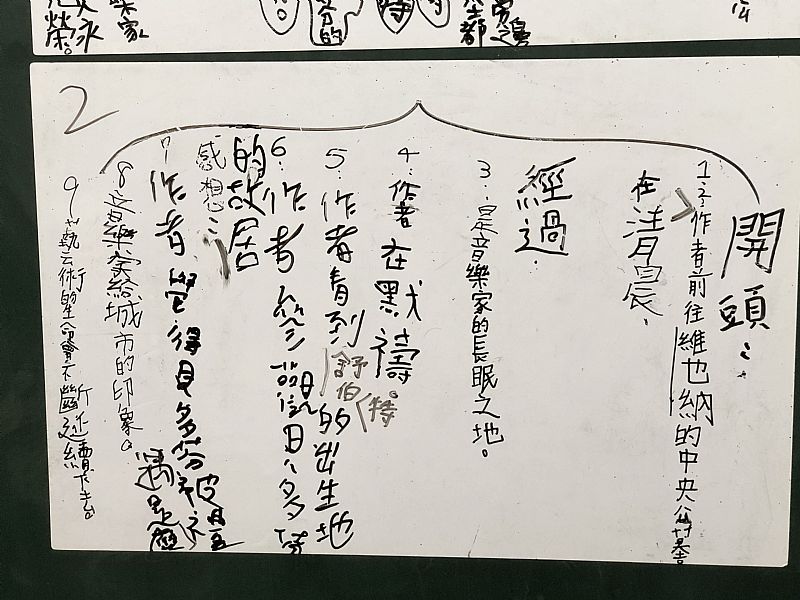 樂家
2
開頭：
1.作者前往維也納的中央公墓
在清晨、
經過
3.是音樂家的長眠之地。
4.作者在默禱。
5.作者看到舒伯特的出生地
6.作者參觀貝多芬
的故居
感想：
7.作者覺得貝多芬
8.音樂家給城市的印象。
9.藝術的生命會不斷延續下去。